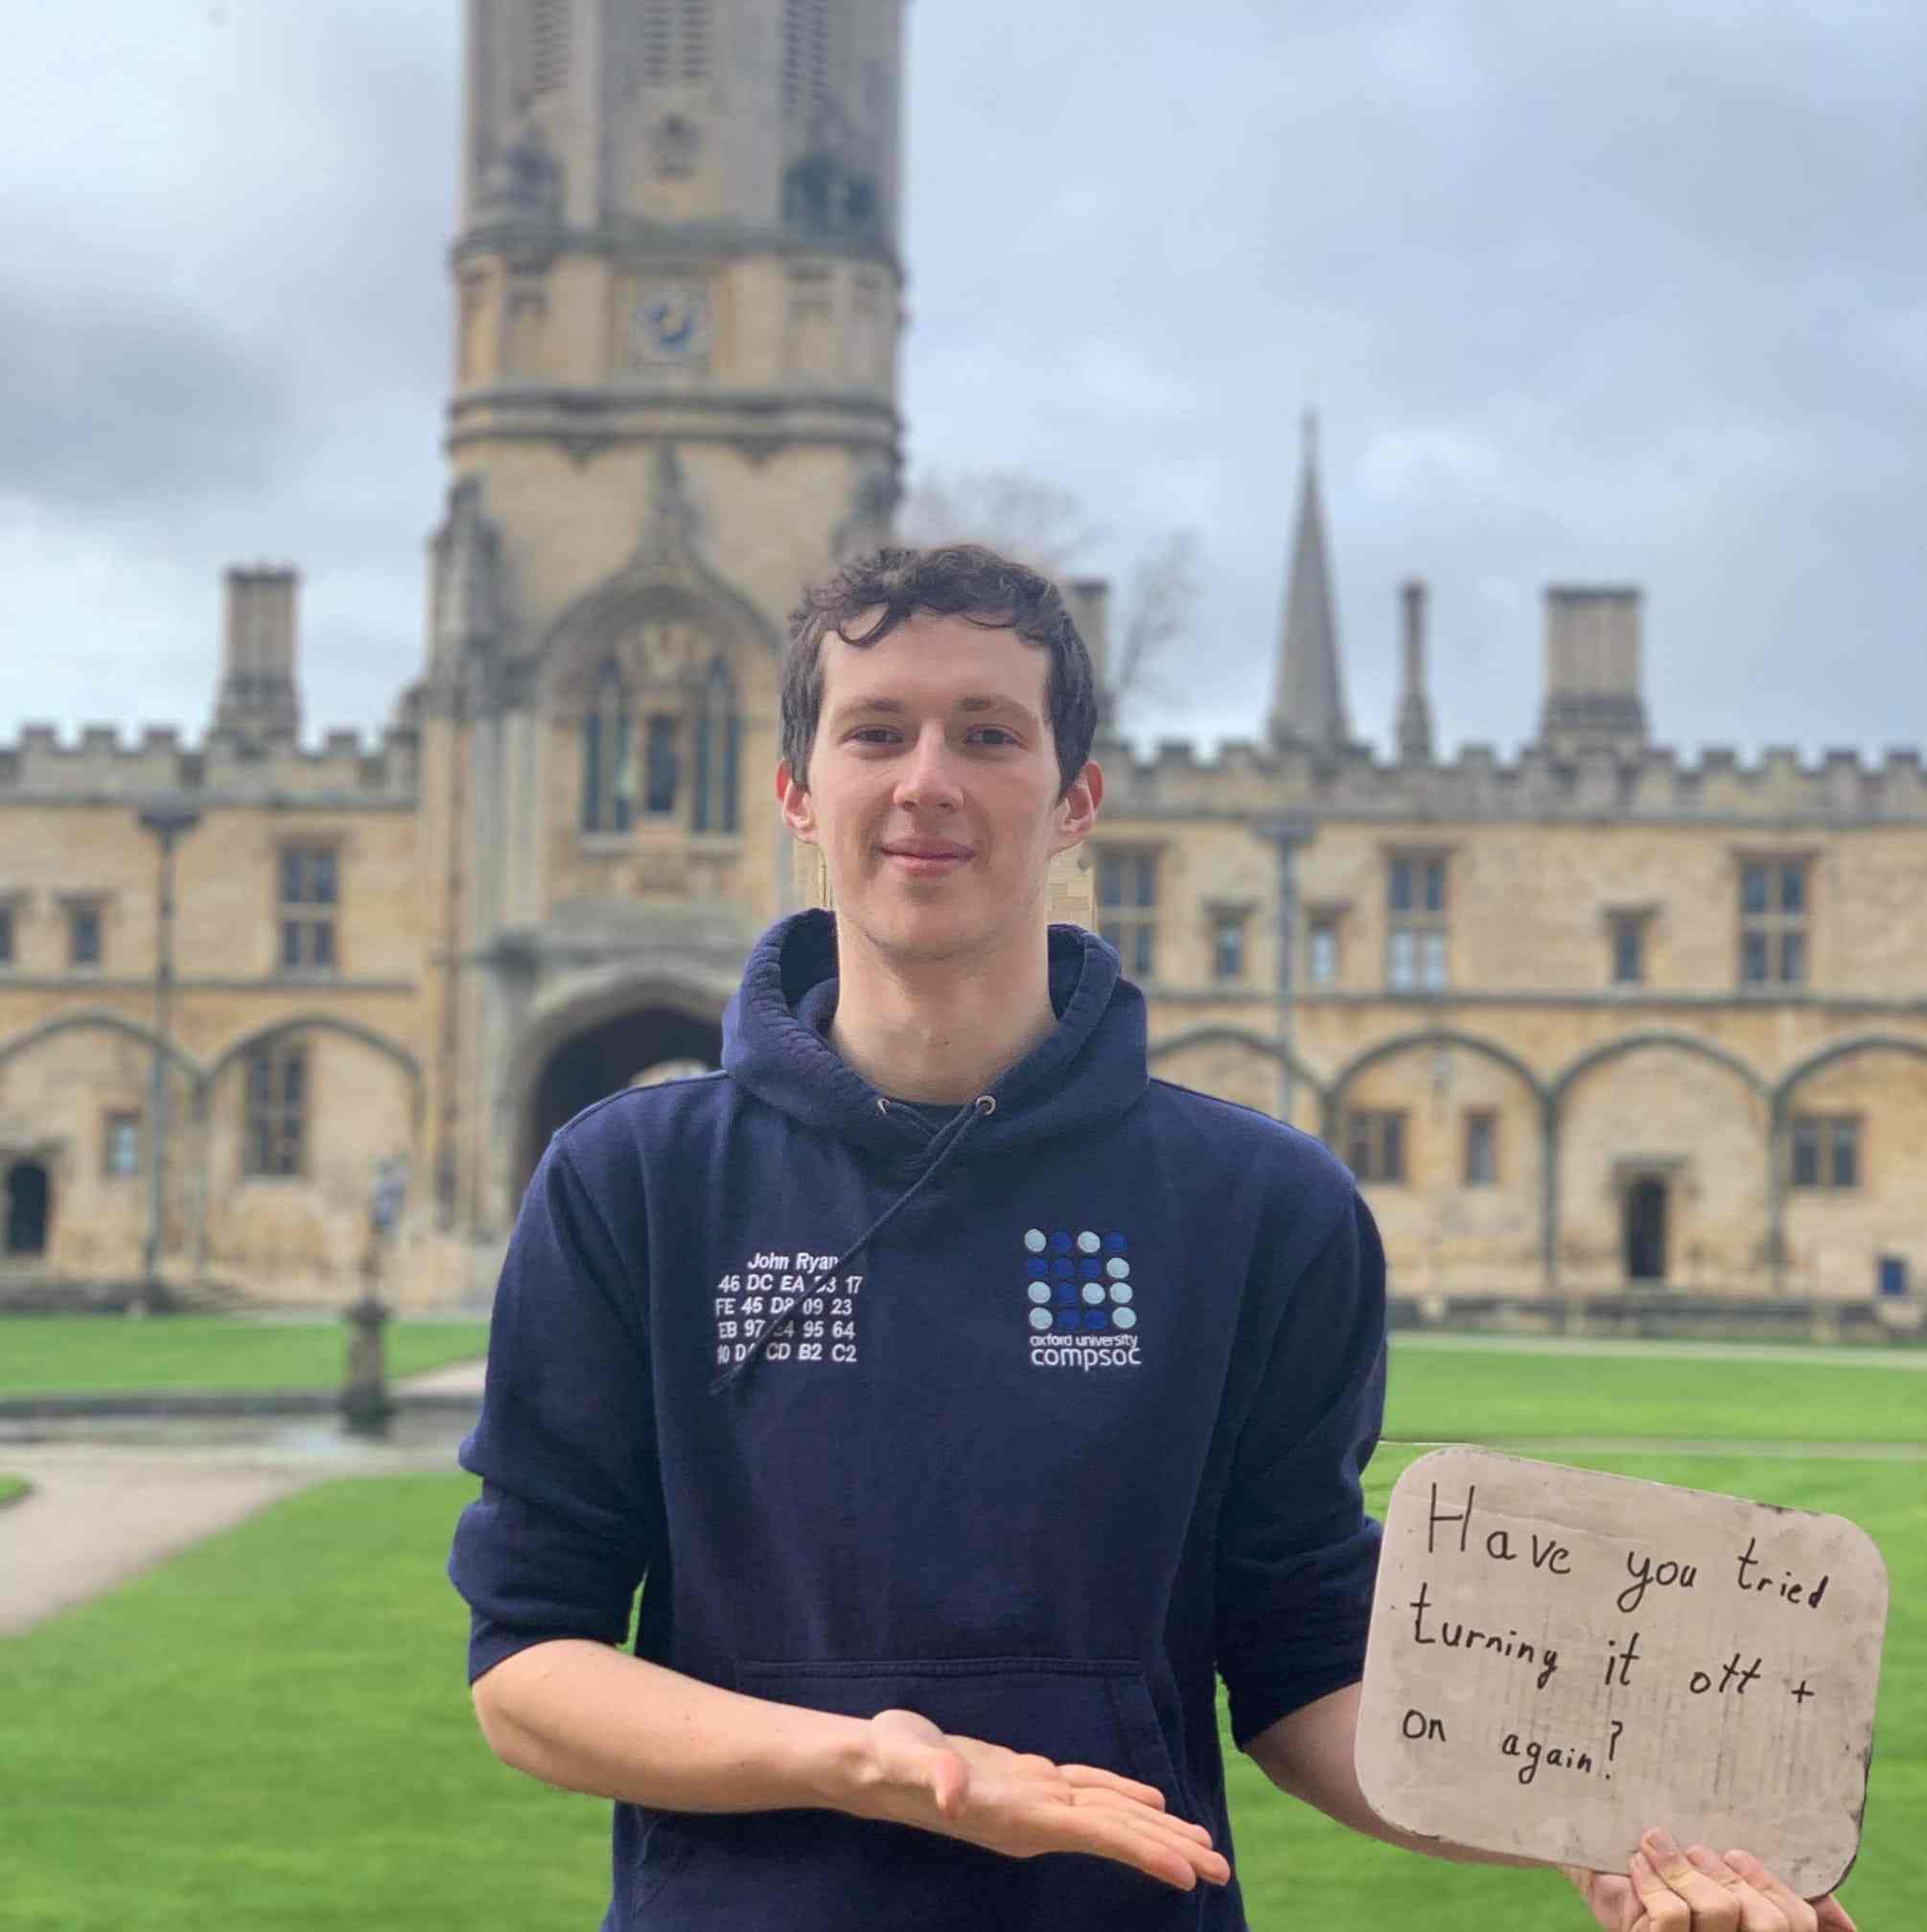 John Ryan
46 DC EA 17
FE 45 09 23
EB 97 95 64
CD B2 C2
oxford university
compsoc
Have you tried
turning it off +
on again?